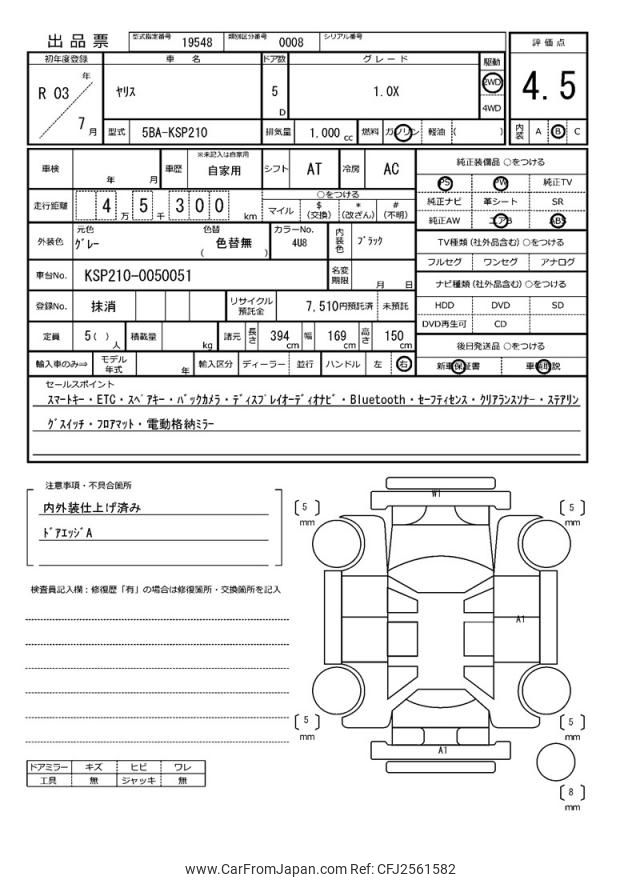 出品票 型式指定番号 19548 類別区分番号 0008 シリアル番号
評価点
4.5
内装 A B C
初年度登録 車名 ドア数 グレード 駆動
R 03 年 7 月 ヤリス 5 D 1.0X 2WD 4WD
型式 5BA-KSP210 排気量 1.000 cc 燃料 ガソリン 軽油 ( )
車検 年 月 車歴 ※未記入は自家用 自家用 シフト AT 冷房 AC
走行距離 4 万 5 千 3 0 0 km
○をつける
マイル $ (交換) * (改ざん) # (不明)
外装色 元色 グレー 色替 色替無 ( ) カラーNo. 4U8 内装色 ブラック
車台No. KSP210-0050051 名変期限 月 日
登録No. 抹消 リサイクル預託金 7,510円預託済 未預託
定員 5( ) 人 積載量 kg 諸元 長さ 394 cm 幅 169 cm 高さ 150 cm
輸入車のみ⇒ モデル年式 年 輸入区分 ディーラー 並行 ハンドル 左 右
純正装備品 ○をつける
PS PW 純正TV
純正ナビ 革シート SR
純正AW エアB ABS
TV種類 (社外品含む) ○をつける
フルセグ ワンセグ アナログ
ナビ種類 (社外品含む) ○をつける
HDD DVD SD
DVD再生可 CD
後日発送品 ○をつける
新車保証書 車輌取説
セールスポイント
スマートキー・ETC・スペアキー・バックカメラ・ディスプレイオーディオナビ・Bluetooth・セーフティセンス・クリアランスソナー・ステアリン
グスイッチ・フロアマット・電動格納ミラー
注意事項・不具合箇所
内外装仕上げ済み
ドアエッジA
検査員記入欄：修復歴「有」の場合は修復箇所・交換箇所を記入
ドアミラー キズ ヒビ ワレ
工具 無 ジャッキ 無
W1
[5] mm
[5] mm
A1
[5] mm
[5] mm
A1
[8] mm
www.CarFromJapan.com Ref: CFJ2561582